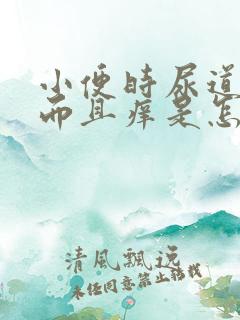 小便时尿道
而且痒是怎
清風飄逸
未经同意禁止转载